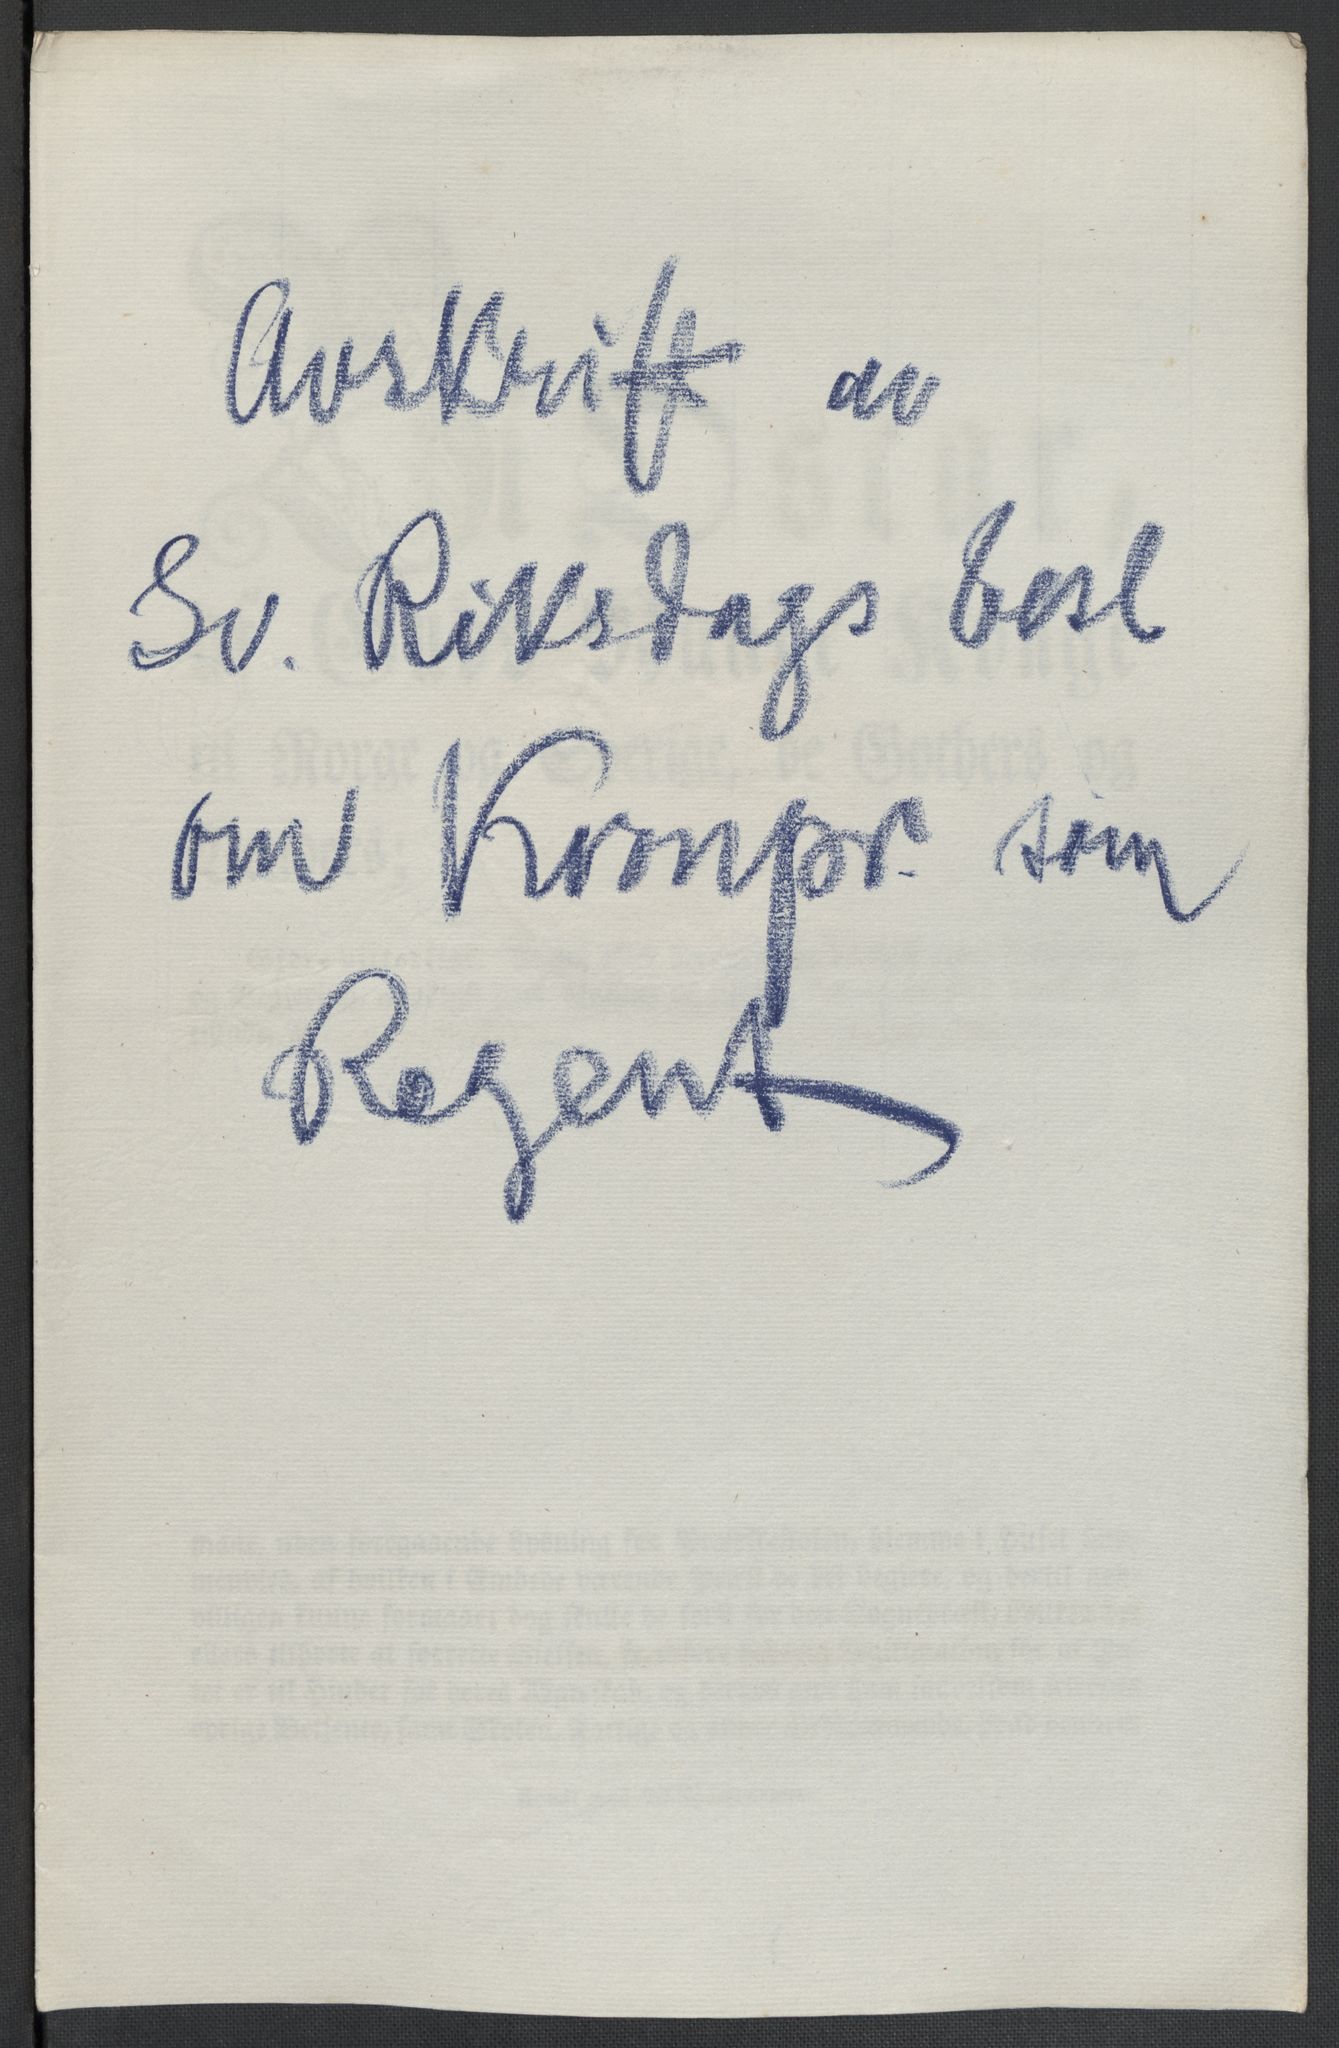 Avskrift av
Sv. Riksdags besl
om Kronpr. som
Regent